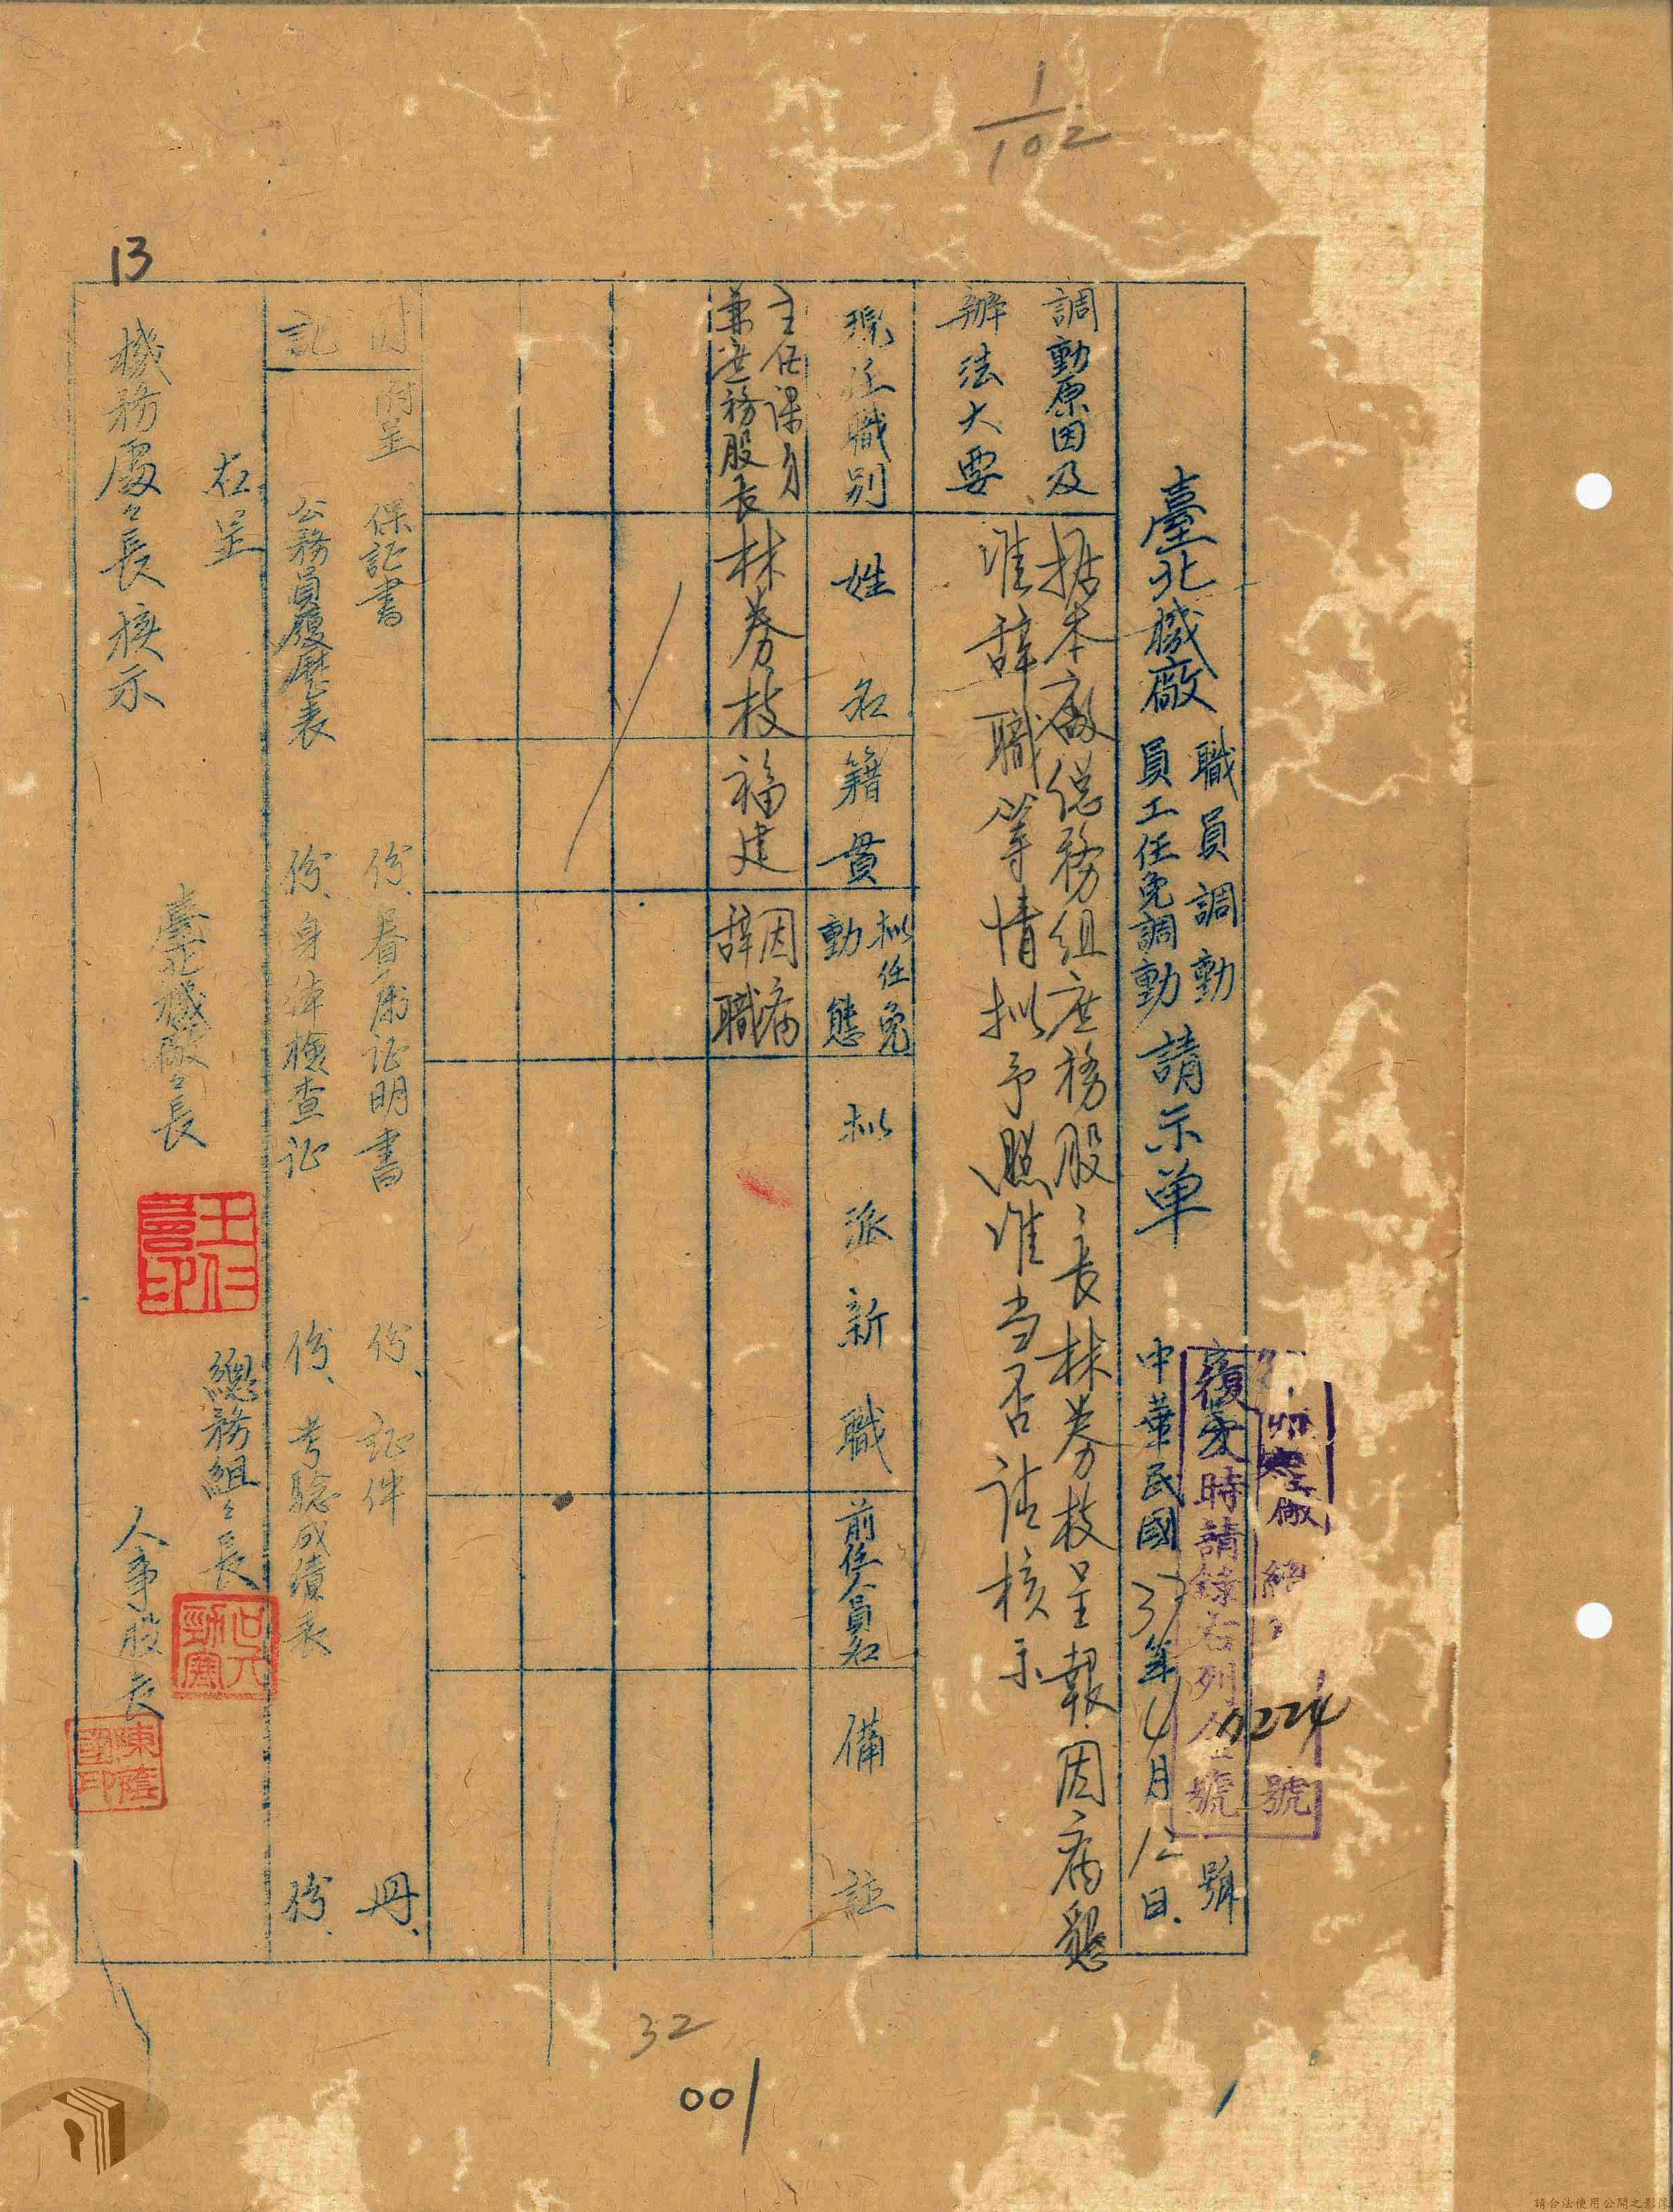 1/102
13
卯
廠
總
號
復文時請錄右列
號
0224
臺北機廠
職員調動
員工任免調動
請示单
號
中華民國37年4月12日
調動原因及
辦法大要
据本廠総務組庶務股々長林劵枝呈報因病懇
准辞職等情拟予照准当否請核示
現任職別
姓名
籍貫
拟任免
動態
拟派新職
前任人員名
備註
主任課員
兼庶務股長
林劵枝
福建
因病
辞職
附
記
附呈
保証書
份、眷属证明書
份、証件
冊、
公務員履歷表
份、身体檢查证
份、考驗成績表
份、
右呈
機務處々長核示
臺北機廠々長
總務組々長
人事股長
陳蔭
國印
32
001
請合法使用公開之影像